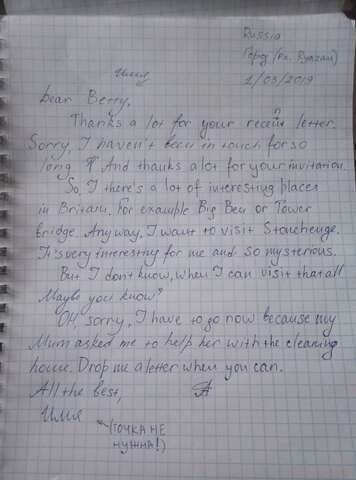 Russia
город (Ex. Ryazan)
1/03/2019
Имя
Dear Betty,
Thanks a lot for your recent letter.
Sorry, I haven't been in touch for so
long. And thanks a lot for your invitation.
So, I there's a lot of interesting places
in Britain. For example Big Ben or Tower
bridge. Anyway, I want to visit Stonehenge.
It's very interesting for me and so mysterious.
But I don't know, when I can visit that all
Maybe you know?
Oh, sorry, I have to go now because my
Mum asked me to help her with the cleaning
house. Drop me a letter when you can.
All the best,
Имя
(ТОЧКА НЕ
НУЖНА!)